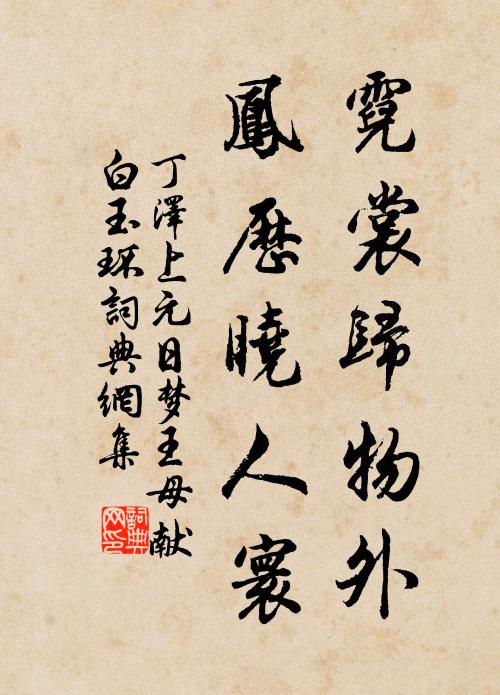 霓裳歸物外
鳳歷曉人寰
丁澤上元日梦王母献
白玉环詞典網集
詞典
网印